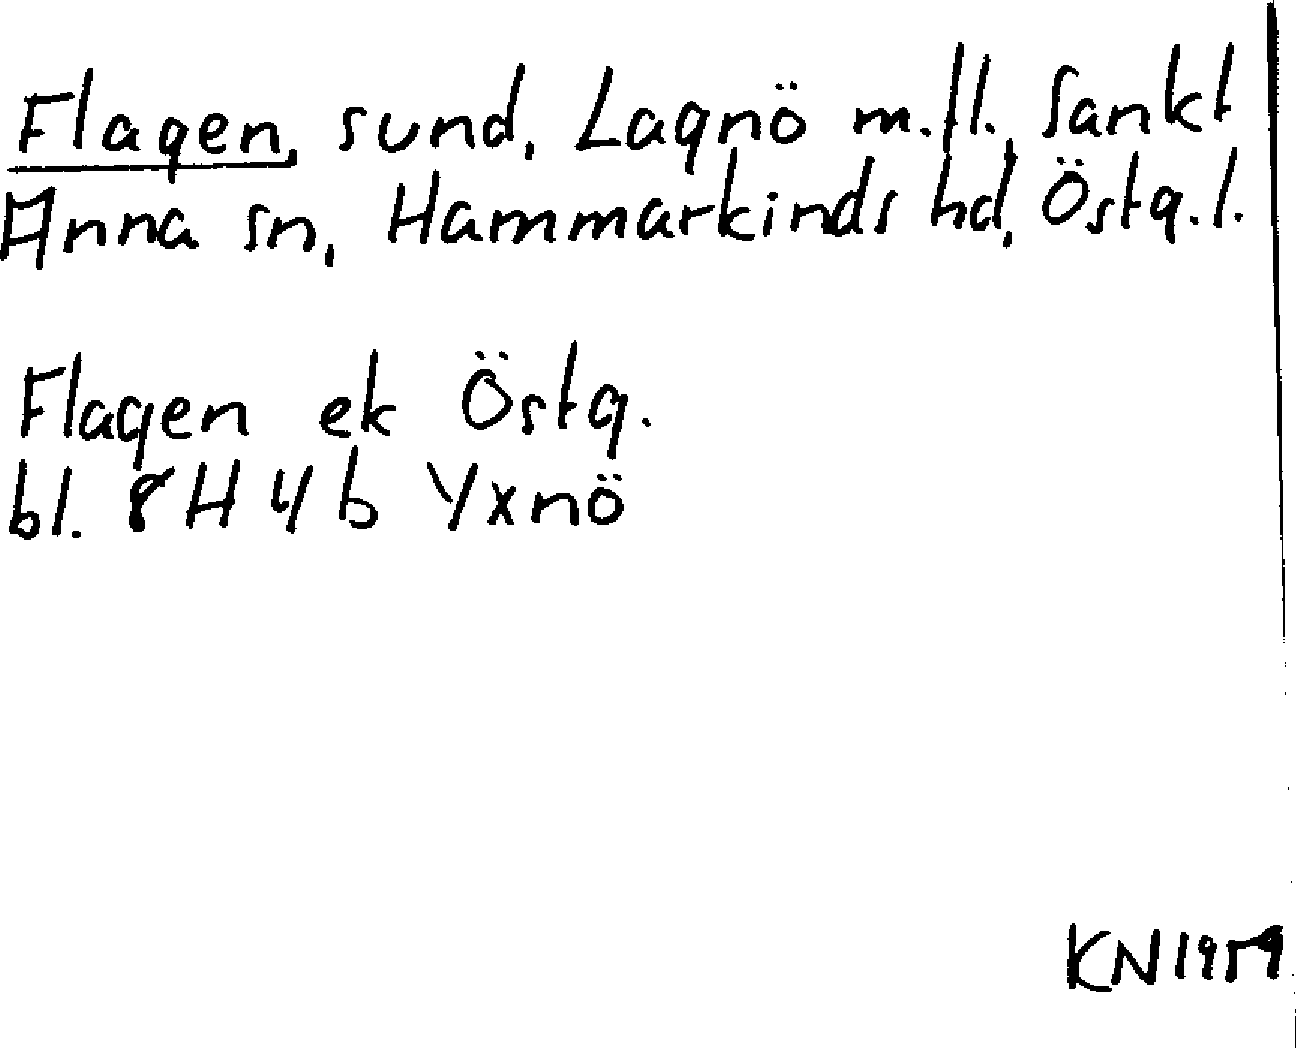 Flagen, sund, Lagnö m.fl., Sankt
Anna sn, Hammarkinds hd, Östg.l.
Flagen ek Östg.
bl. 8H 4b Yxnö
KN 1959